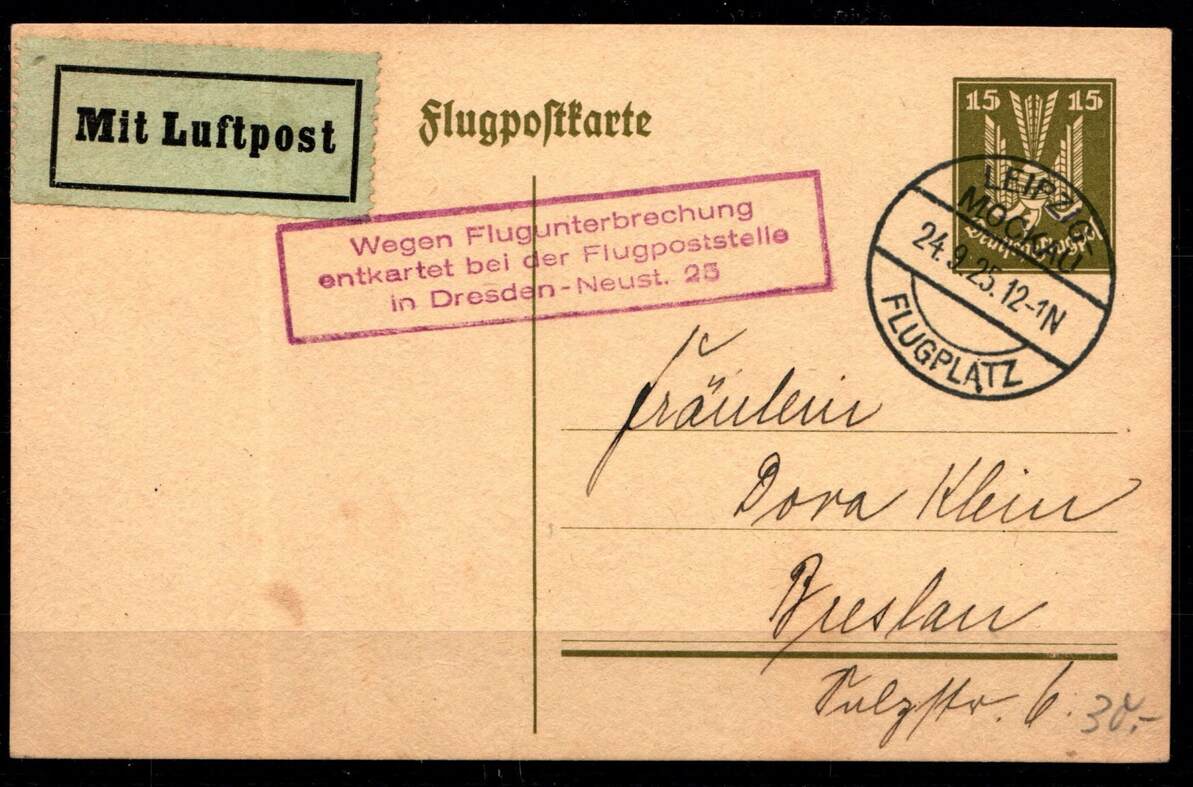 Mit Luftpost
Flugpostkarte
15 15
Deutsche Flugpost
LEIPZIG
MOCKAU
24.9.25.12-1N
FLUGPLATZ
Wegen Flugunterbrechung
entkartet bei der Flugpoststelle
in Dresden-Neust. 25
Fräulein
Dora Klein
Breslau
Sulzstr. 6.
30.-